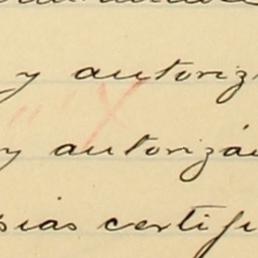 y autoriz
y autorizá
pias certifi